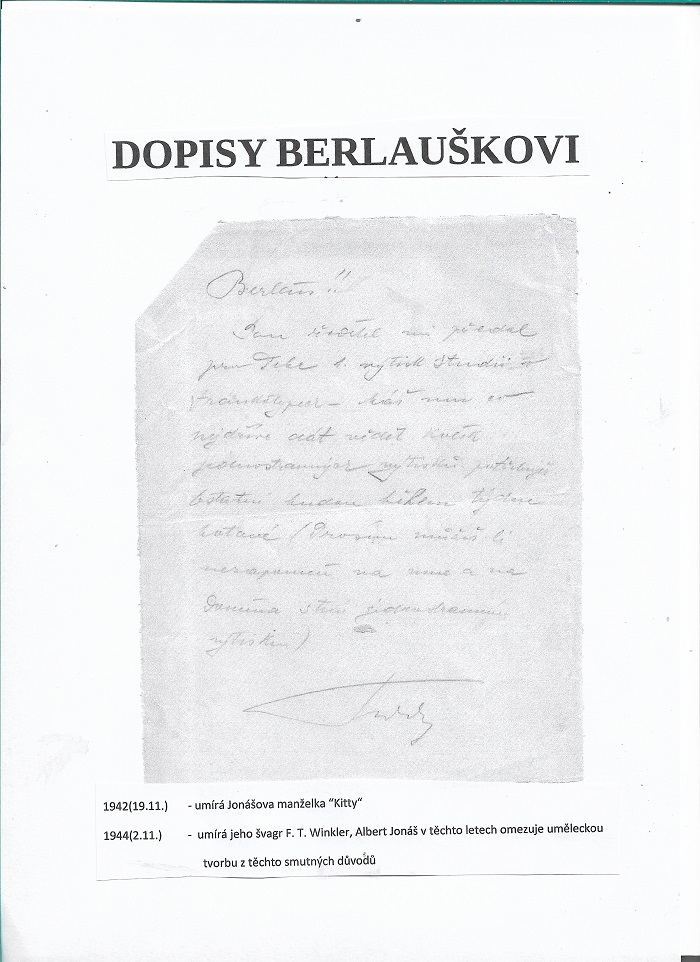 DOPISY BERLAUŠKOVI
Berlauš!!
Pan ředitel mi předal
pro Tebe 1. výtisk studii o
Máš mu co
nejdříve dát vědět kolik
jednostranných výtisků potřebuješ
Ostatní budou během týdne
hotové (Prosím můžeš li
nezapomeň na mne a na
výtisku)
1942(19.11.) - umírá Jonášova manželka “Kitty“
1944(2.11.) - umírá jeho švagr F. T. Winkler, Albert Jonáš v těchto letech omezuje uměleckou
tvorbu z těchto smutných důvodů